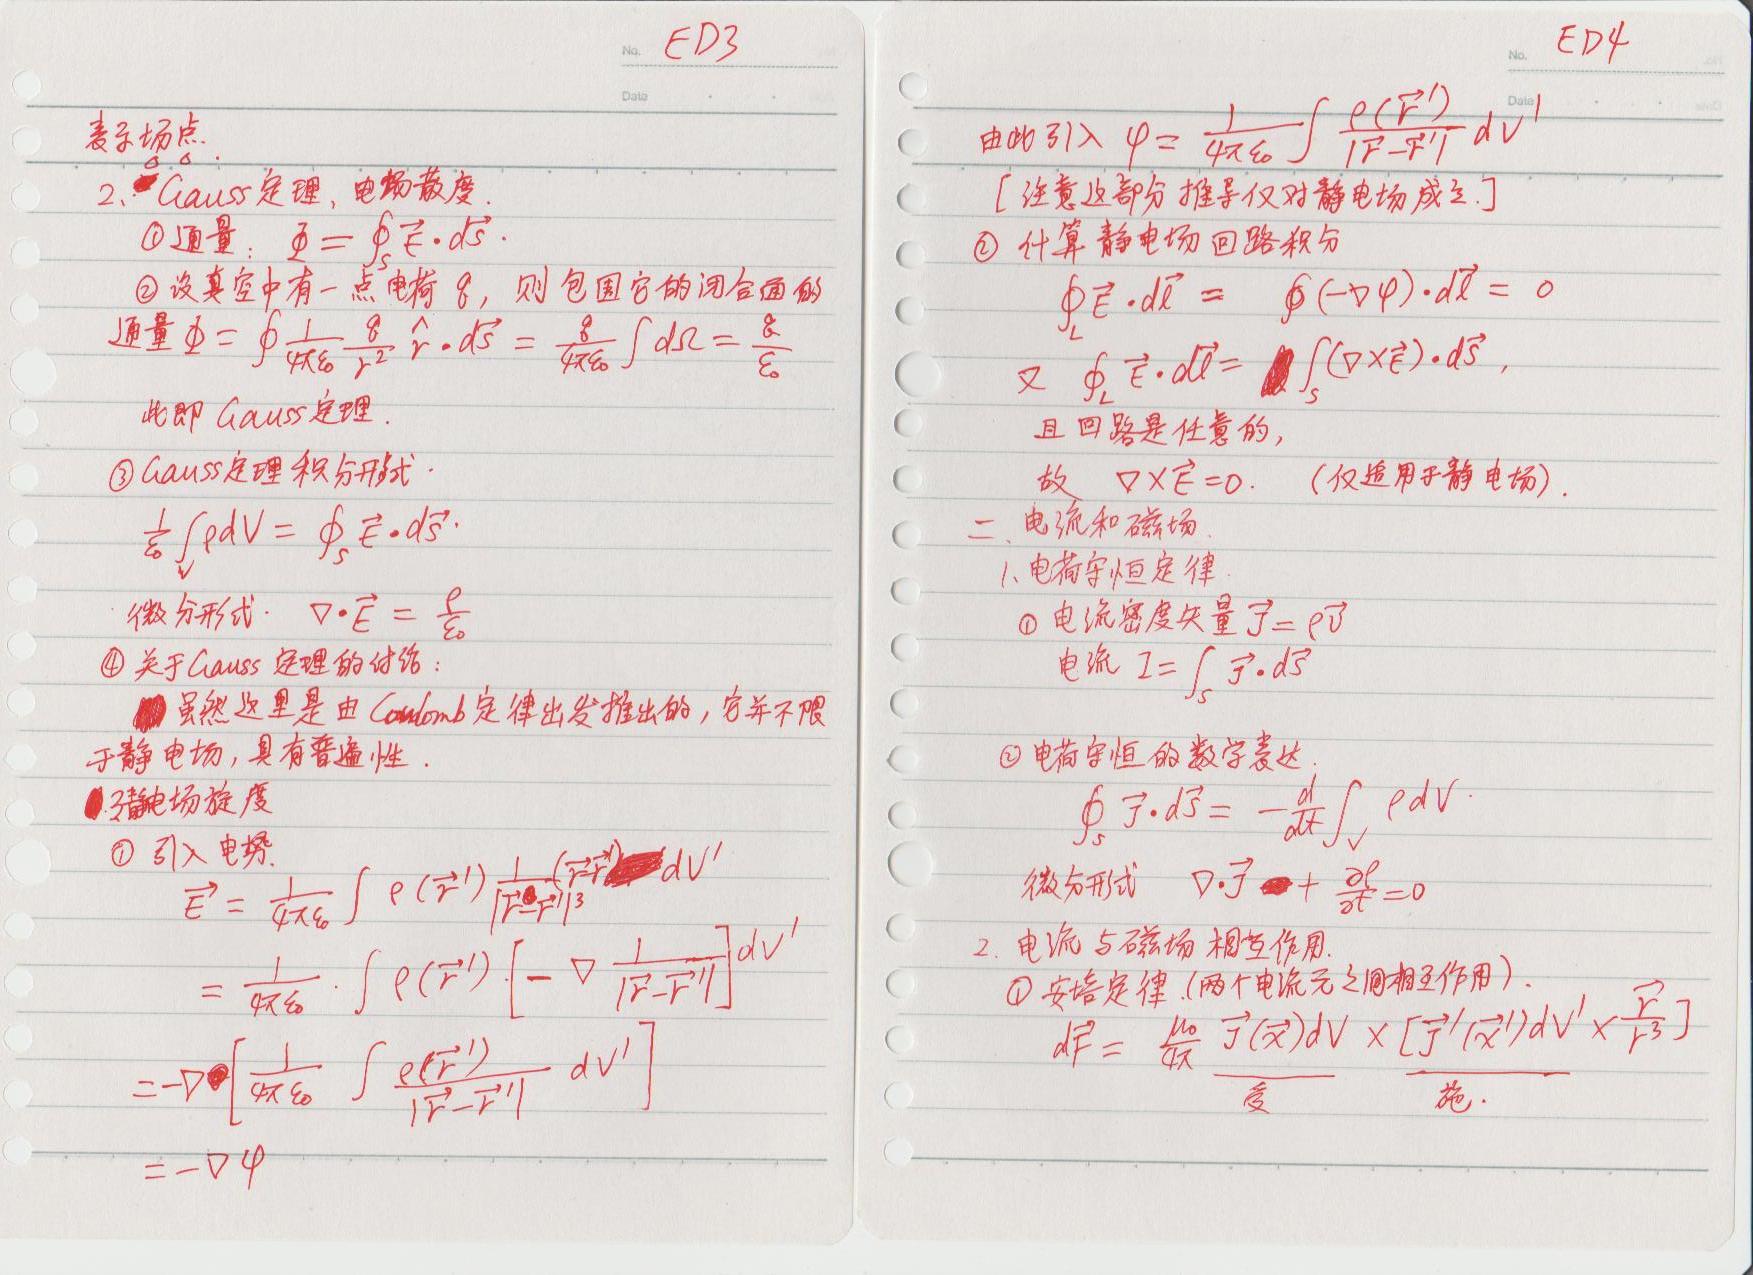 No. ED3
Date
表示场点.
2. Gauss定理、电场散度.
①通量: Φ = ∮_S E⃗·dS⃗.
②设真空中有一点电荷 q, 则包围它的闭合面的
通量 Φ = ∮ 1/4πε₀ q/r² r̂·dS⃗ = q/4πε₀ ∫ dΩ = q/ε₀
此即 Gauss定理.
③Gauss定理积分形式.
1/ε₀ ∫_V ρdV = ∮_S E⃗·dS⃗.
微分形式. ∇·E⃗ = ρ/ε₀
④关于Gauss定理的讨论:
虽然这里是由Coulomb定律出发推出的, 它并不限
于静电场, 具有普遍性.
3.静电场旋度
①引入电势.
E⃗ = 1/4πε₀ ∫ ρ(r⃗′) 1/|r⃗-r⃗′|³ (r⃗-r⃗′) dV′
= 1/4πε₀ · ∫ ρ(r⃗′)·[-∇ 1/|r⃗-r⃗′|] dV′
= -∇[1/4πε₀ ∫ ρ(r⃗′)/|r⃗-r⃗′| dV′]
= -∇φ
No. ED4
Date
由此引入 φ = 1/4πε₀ ∫ ρ(r⃗′)/|r⃗-r⃗′| dV′
[注意这部分推导仅对静电场成立.]
② 计算静电场回路积分
∮_L E⃗·dl⃗ = ∮(-∇φ)·dl⃗ = 0
又 ∮_L E⃗·dl⃗ = ∫_S (∇×E⃗)·dS⃗,
且回路是任意的,
故 ∇×E⃗=0. (仅适用于静电场).
二、电流和磁场.
1、电荷守恒定律.
① 电流密度矢量 J⃗ = ρv⃗
电流 I = ∫_S J⃗·dS⃗
②电荷守恒的数学表达.
∮_S J⃗·dS⃗ = -d/dt ∫_V ρdV.
微分形式 ∇·J⃗ + ∂ρ/∂t = 0
2. 电流与磁场相互作用.
① 安培定律.(两个电流元之间相互作用).
dF⃗ = μ₀/4π J⃗(x⃗)dV × [J⃗′(x⃗′)dV′ × r⃗/r³]
受 施.